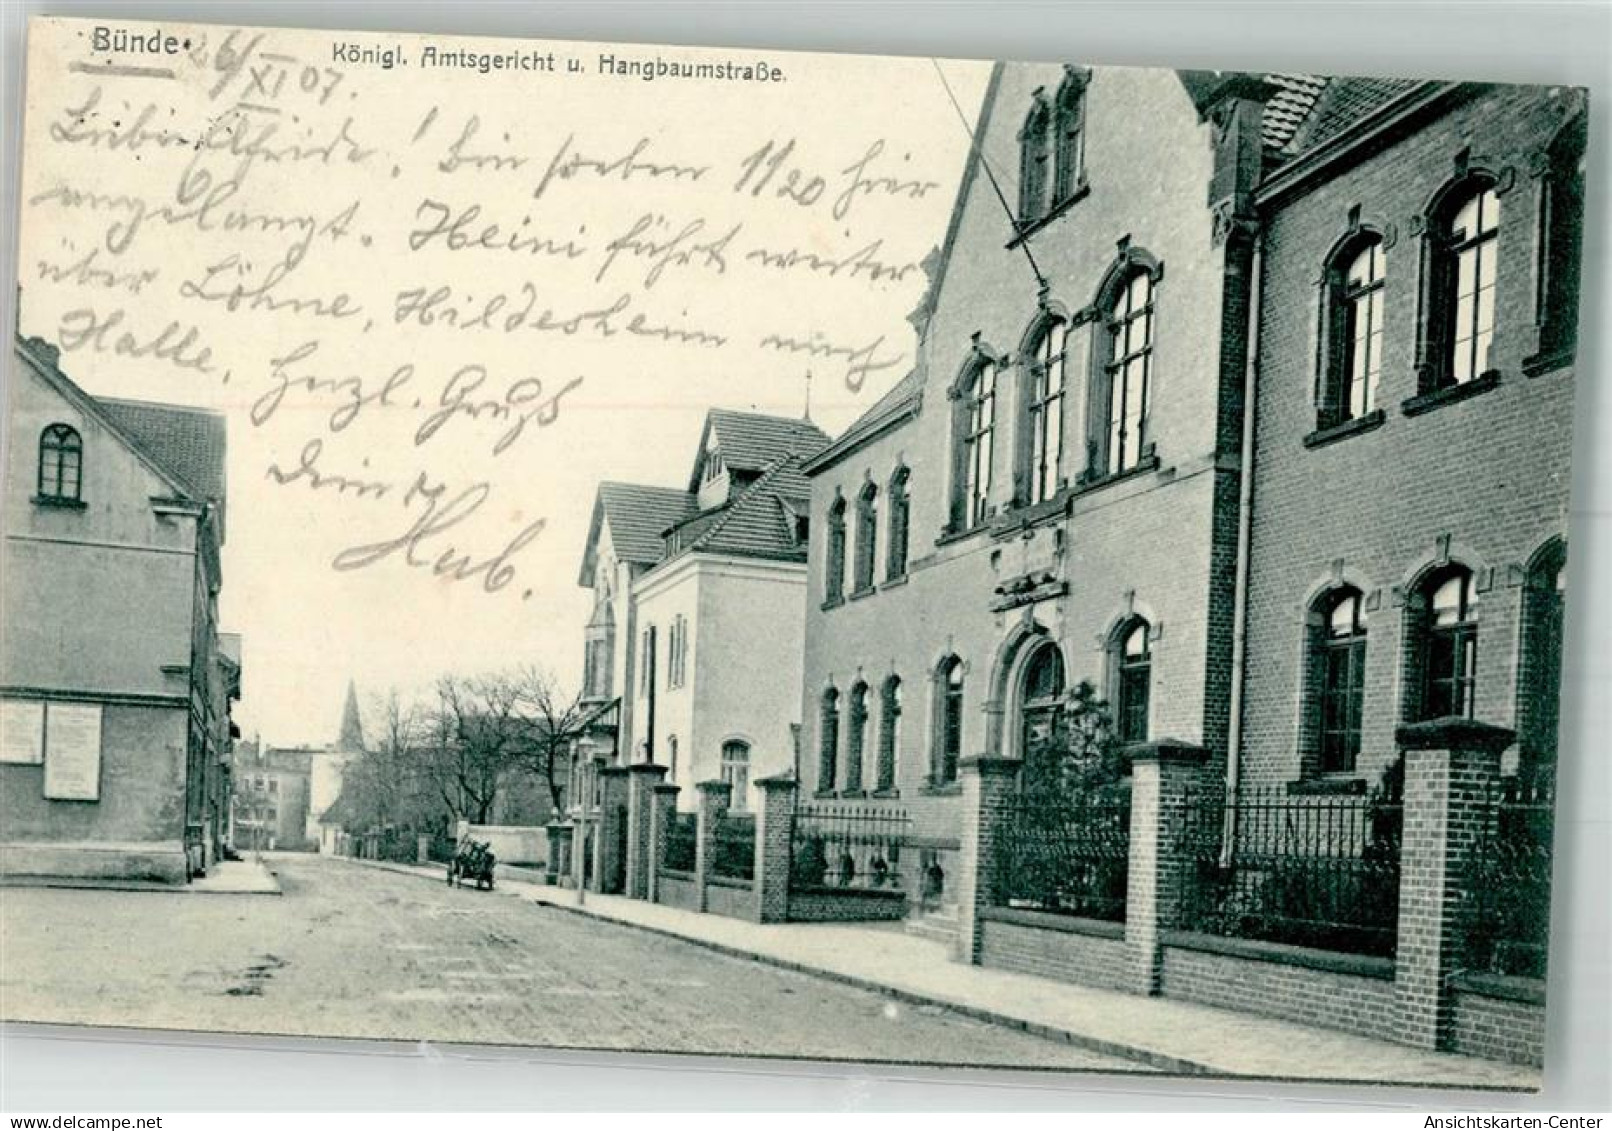 Bünde.
Königl. Amtsgericht u. Hangbaumstraße.
26/XI 07.
Liebe Elfride! Bin soeben 11 20 hier
angelangt. Heini führt weiter
über Löhne, Hildesheim nach
Halle, Herzl. Gruß
Dein
Hub.
delcampe.net
Ansichtskarten-Center